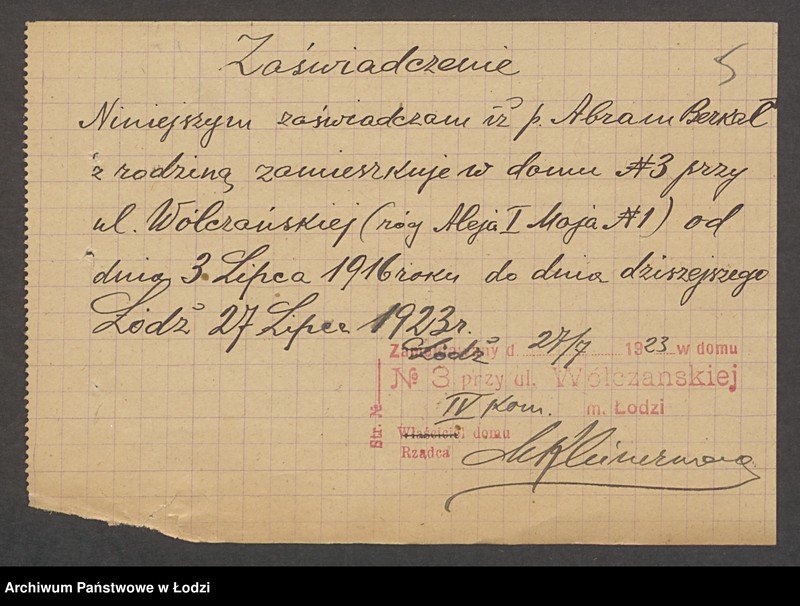 Zaświadczenie
5
Niniejszym zaświadczam iż p. Abram Berkał
z rodziną zamieszkuje w domu №3 przy
ul. Wólczańskiej (róg Aleja I Maja №1) od
dnia 3 Lipca 1916 roku do dnia dziszejszego
Łódź 27 Lipca 1923 r.
Łódź
d. 27/7 1923 w domu
№ 3 przy ul. Wólczańskiej
IV Kom. m. Łodzi
Str. №
Właściciel domu
Rządca
Archiwum Państwowe w Łodzi